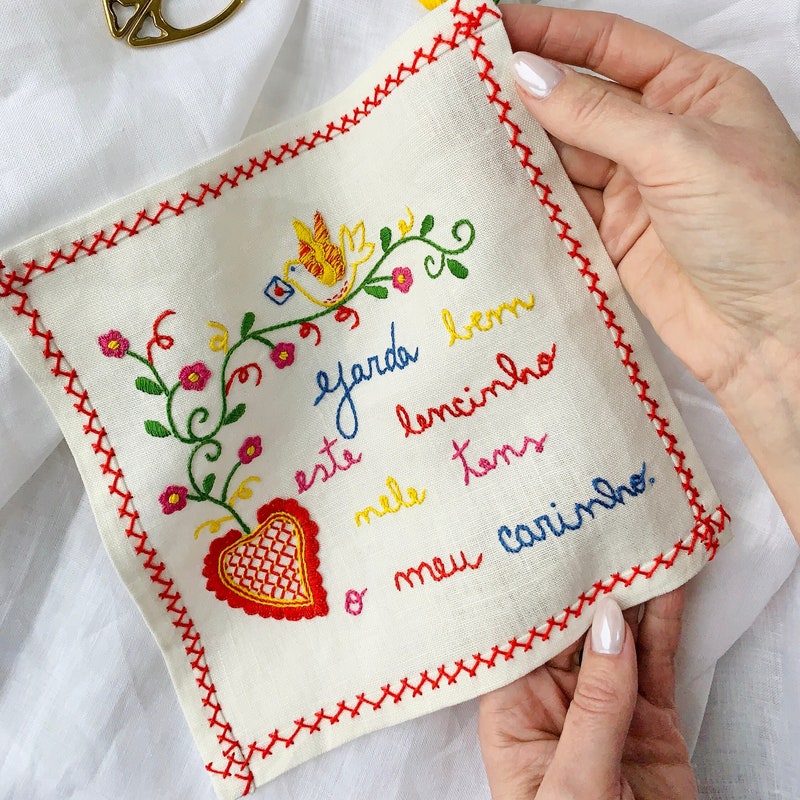 Garda bem
este lencinho
nele tens
o meu carinho.